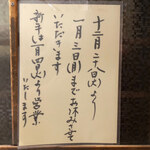 十二月二八日(火)より
一月三日(月)までお休みさせて
いただきます
新年は一月四日(火)より営業
いたします